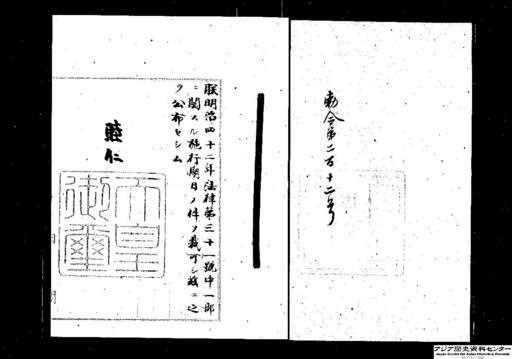 勅令第二百十二号
朕明治四十二年法律第三十一號中一部
ニ關スル施行期日ノ件ヲ裁可シ茲ニ之
ヲ公布セシム
睦仁
天皇
御璽
アジア歴史資料センター
Japan Center for Asian Historical Records